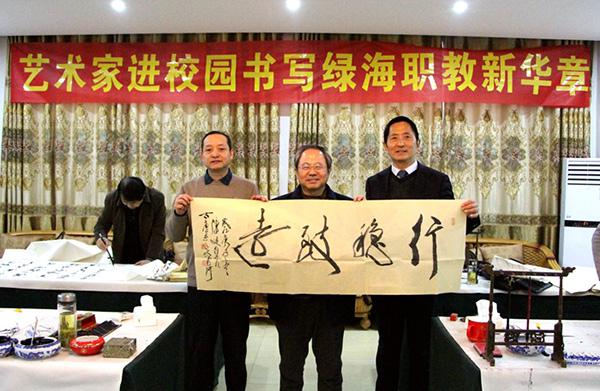 艺术家进校园书写绿海职教新华章
行穩致遠